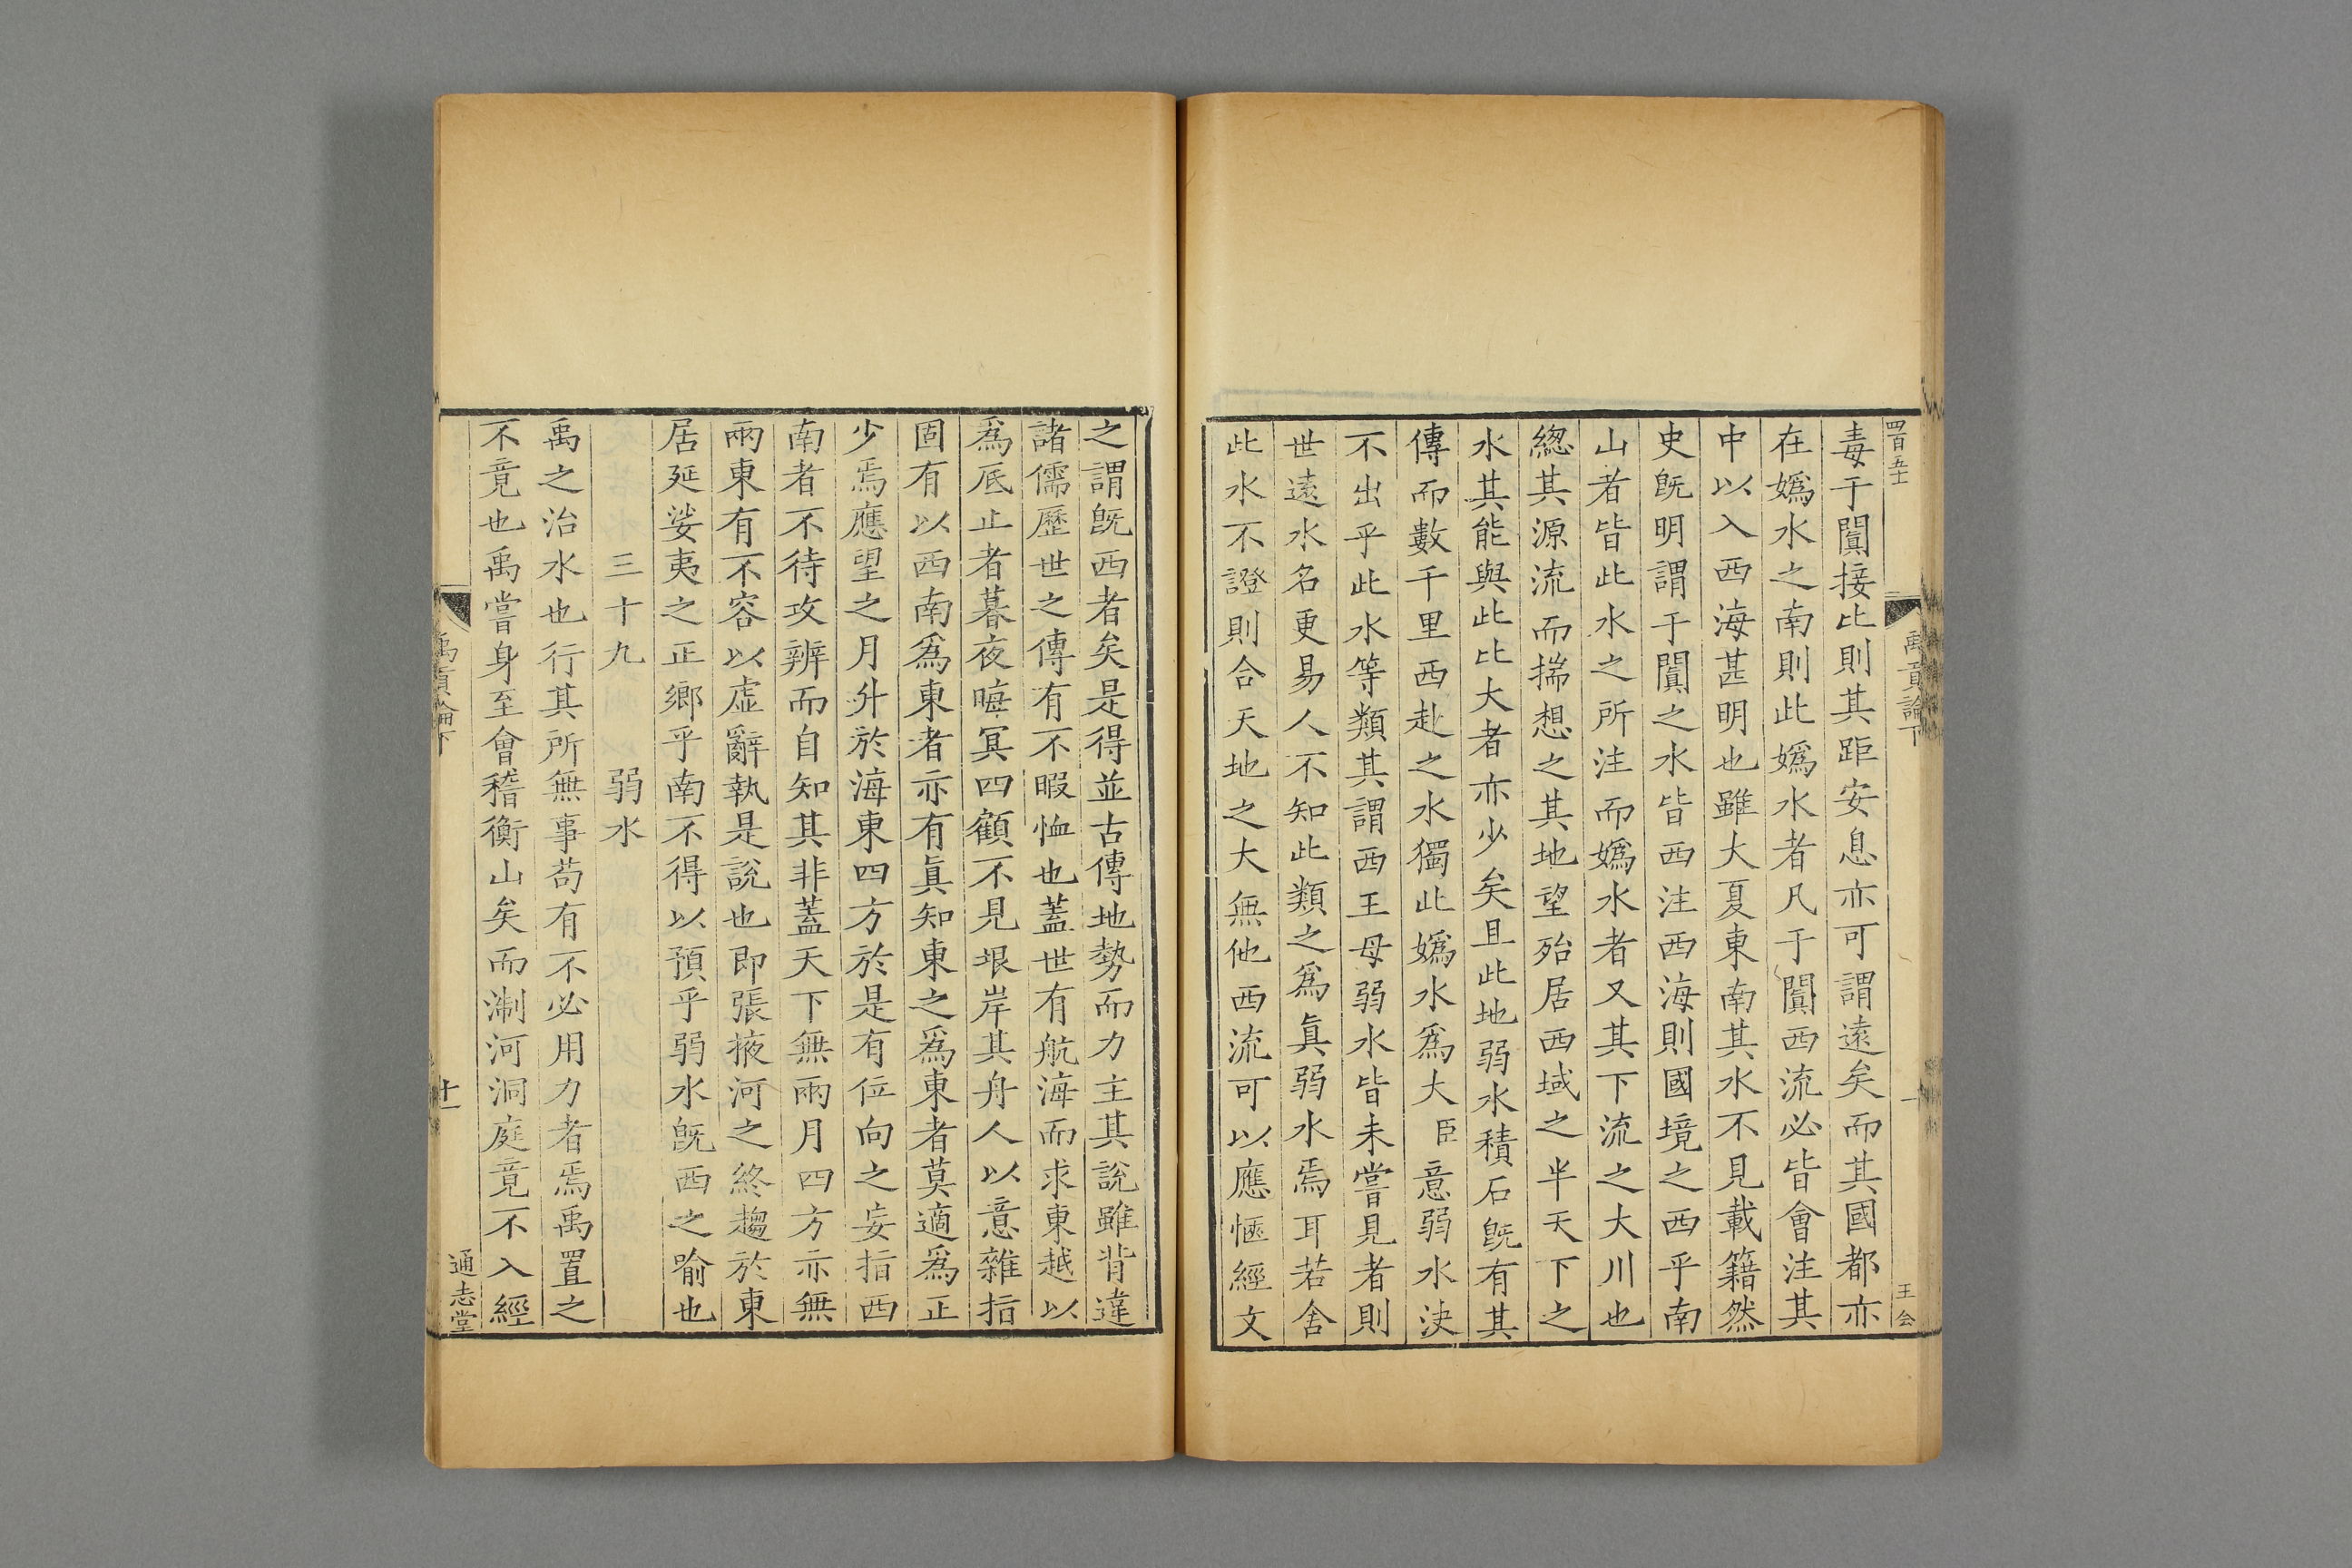 四百五十
禹貢論下
王公
毒于闐接比則其距安息亦可謂遠矣而其國都亦
在嬀水之南則此嬀水者凡于闐西流必皆會注其
中以入西海甚明也雖大夏東南其水不見載籍然
史旣明謂于闐之水皆西注西海則國境之西乎南
山者皆此水之所注而嬀水者又其下流之大川也
緫其源流而揣想之其地望殆居西域之半天下之
水其能與此比大者亦少矣且此地弱水積石旣有其
傳而數千里西赴之水獨此嬀水爲大臣意弱水決
不出乎此水等類其謂西王母弱水皆未嘗見者則
世遠水名更易人不知此類之爲眞弱水焉耳若舍
此水不證則合天地之大無他西流可以應愜經文
之謂旣西者矣是得並古傳地勢而力主其說雖背違
諸儒歷世之傳有不暇恤也蓋世有航海而求東越以
爲底止者暮夜晦冥四顧不見垠岸其舟人以意雜指
固有以西南爲東者亦有眞知東之爲東者莫適爲正
少焉應望之月升於海東四方於是有位向之妄指西
南者不待攻辨而自知其非蓋天下無兩月四方亦無
兩東有不容以虛辭執是說也即張掖河之終趨於東
居延娑夷之正鄉乎南不得以預乎弱水旣西之喻也
三十九　弱水
禹之治水也行其所無事苟有不必用力者焉禹置之
不竟也禹嘗身至會稽衡山矣而淛河洞庭竟不入經
禹貢論下
十一
通志堂